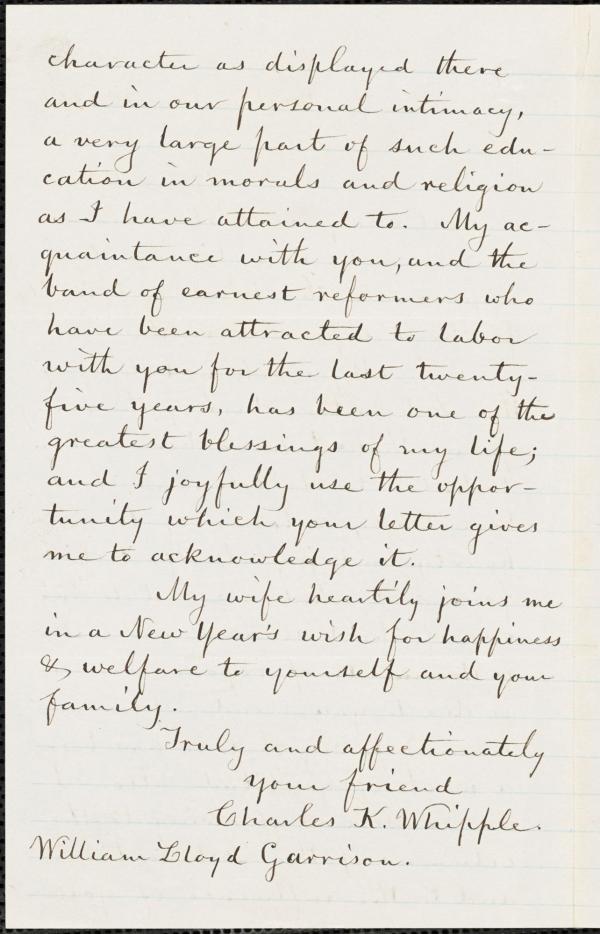 character as displayed there
and in our personal intimacy,
a very large part of such edu-
cation in morals and religion
as I have attained to. My ac-
quaintance with you, and the
band of earnest reformers who
have been attracted to labor
with you for the last twenty-
five years, has been one of the
greatest blessings of my life;
and I joyfully use the oppor-
tunity which your letter gives
me to acknowledge it.
My wife heartily joins me
in a New Year's wish for happiness
& welfare to yourself and your
family.
Truly and affectionately
your friend
Charles K. Whipple.
William Lloyd Garrison.